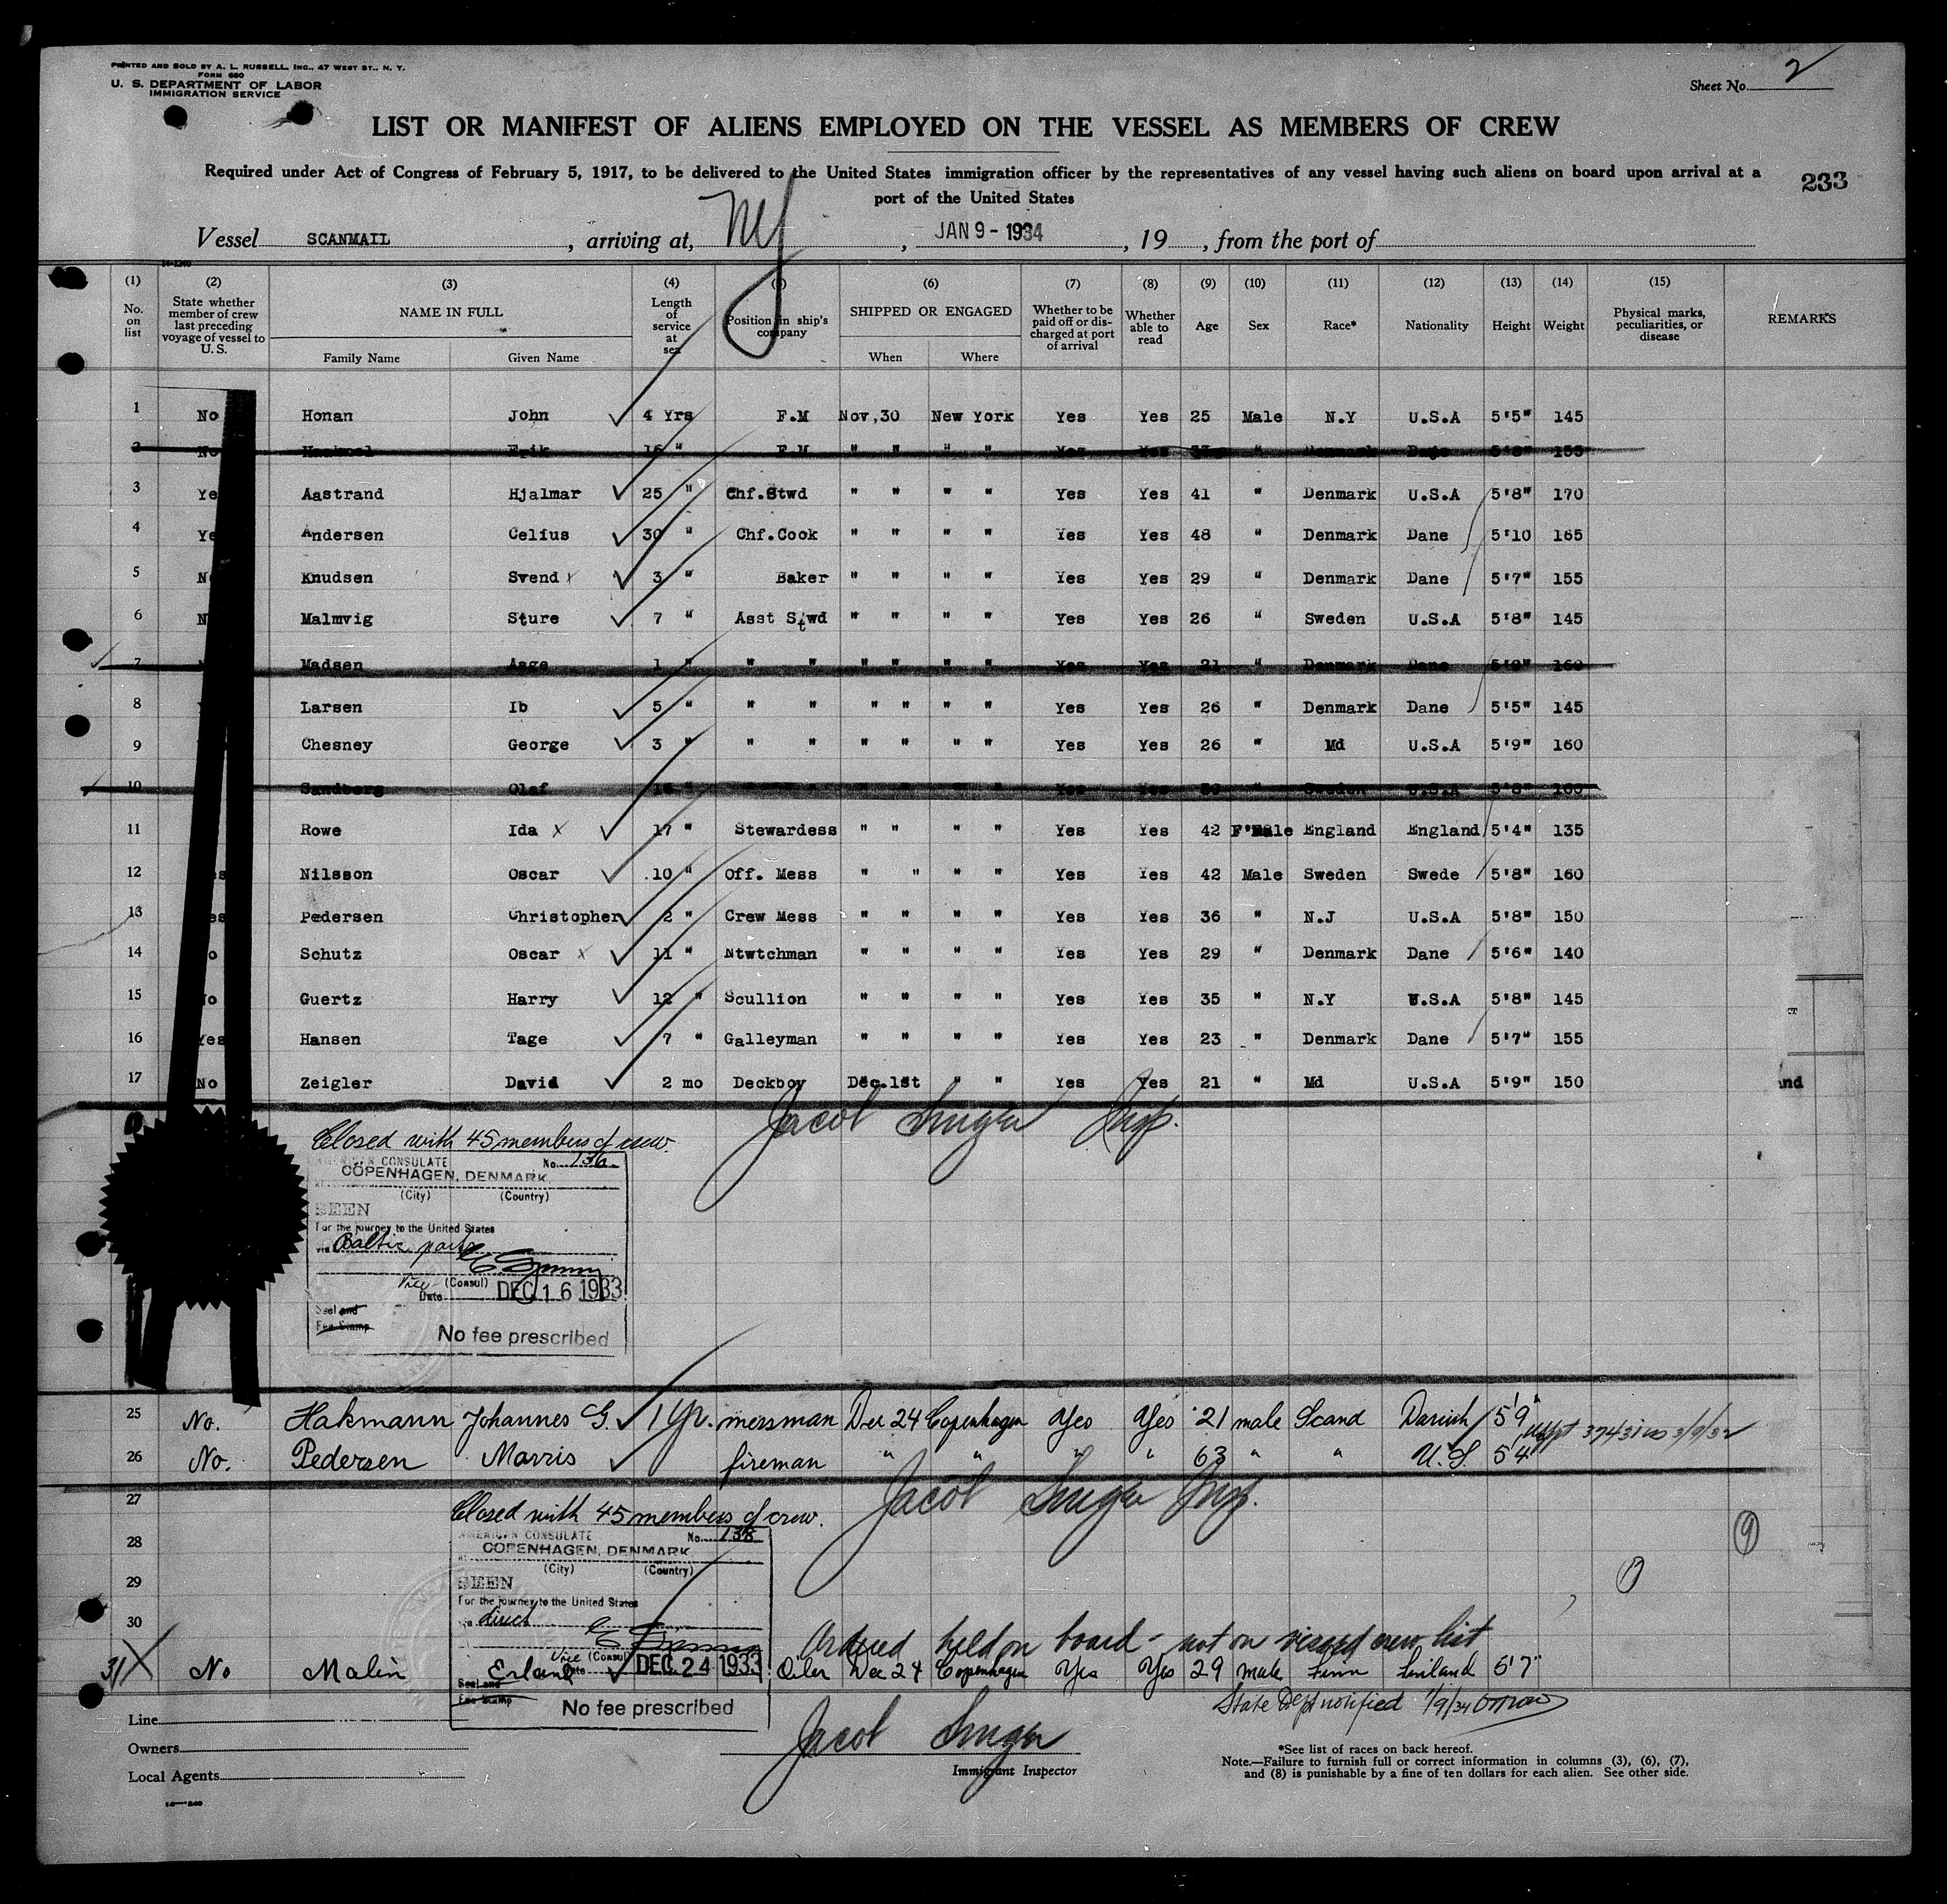 PRINTED AND SOLD BY A. L. RUSSELL, INC., 47 WEST ST., N. Y.
FORM 680
U. S. DEPARTMENT OF LABOR
IMMIGRATION SERVICE
Sheet No. 2
LIST OR MANIFEST OF ALIENS EMPLOYED ON THE VESSEL AS MEMBERS OF CREW
Required under Act of Congress of February 5, 1917, to be delivered to the United States immigration officer by the representatives of any vessel having such aliens on board upon arrival at a
port of the United States
233
Vessel SCANMAIL, arriving at, NY, JAN 9 - 1934, 19, from the port of
(1) (2) (3) (4) (5) (6) (7) (8) (9) (10) (11) (12) (13) (14) (15)
No. on list State whether member of crew last preceding voyage of vessel to U. S. NAME IN FULL Length of service at sea Position in ship's company SHIPPED OR ENGAGED Whether to be paid off or discharged at port of arrival Whether able to read Age Sex Race* Nationality Height Weight Physical marks, peculiarities, or disease REMARKS
Family Name Given Name When Where
1 No Honan John 4 Yrs F.M Nov,30 New York Yes Yes 25 Male N.Y U.S.A 5'5" 145
2 No Erik 16 " F.M " " " " Yes Yes " Denmark 5'8" 155
3 Ye Aastrand Hjalmar 25 " Chf.Stwd " " " " Yes Yes 41 " Denmark U.S.A 5'8" 170
4 Ye Andersen Celius 30 " Chf.Cook " " " " Yes Yes 48 " Denmark Dane 5'10 165
5 N Knudsen Svend x 3 " Baker " " " " Yes Yes 29 " Denmark Dane 5'7" 155
6 N Malmvig Sture 7 " Asst Stwd " " " " Yes Yes 26 " Sweden U.S.A 5'8" 145
7 Madsen Aage 1 " " " " " " " Yes Yes 21 " Denmark Dane 5'9" 160
8 Larsen Ib 5 " " " " " " " Yes Yes 26 " Denmark Dane 5'5" 145
9 Chesney George 3 " " " " " " " Yes Yes 26 " Md U.S.A 5'9" 160
10 Sandberg Olaf " " " " " " " Yes Yes " Sweden U.S.A 5'8" 160
11 Rowe Ida x 17 " Stewardess " " " " Yes Yes 42 F'Male England England 5'4" 135
12 es Nilsson Oscar 10 " Off. Mess " " " " Yes Yes 42 Male Sweden Swede 5'8" 160
13 es Pedersen Christopher 2 " Crew Mess " " " " Yes Yes 36 " N.J U.S.A 5'8" 150
14 o Schutz Oscar x 11 " Ntwtchman " " " " Yes Yes 29 " Denmark Dane 5'6" 140
15 No Guertz Harry 12 " Scullion " " " " Yes Yes 35 " N.Y U.S.A 5'8" 145
16 Yes Hansen Tage 7 " Galleyman " " " " Yes Yes 23 " Denmark Dane 5'7" 155
17 No Zeigler David 2 mo Deckboy Dec.1st " " Yes Yes 21 " Md U.S.A 5'9" 150
nd
Jacob Insp.
Closed with 45 members of crew.
AMERICAN CONSULATE No. 136
COPENHAGEN, DENMARK
(City) (Country)
SEEN
For the journey to the United States
via Baltic ports
Vice (Consul)
Date DEC 16 1933
Seal and
Fee Stamp
No fee prescribed
25 No. Hakmann Johannes G. 1 yr. messman Dec 24 Copenhagen Yes Yes 21 male Scand Danish 5'9"
26 No. Pedersen Marris fireman " " " " 63 " " U.S 5'4
27
Jacob Insp.
Closed with 45 members of crew.
28
AMERICAN CONSULATE No. 138
COPENHAGEN, DENMARK
(City) (Country)
9
29
SEEN
For the journey to the United States
30
via direct
Ordered held on board - not on visaed crew list
Vice (Consul)
Date DEC 24 1933
31 X No Malin Erland Oiler Dec 24 Copenhagen Yes Yes 29 male Finn Finland 5'7"
Seal and
Fee Stamp
No fee prescribed
State Dept notified 1/9/34
Line
Owners
Local Agents
Jacob
Immigrant Inspector
*See list of races on back hereof.
Note.—Failure to furnish full or correct information in columns (3), (6), (7),
and (8) is punishable by a fine of ten dollars for each alien. See other side.